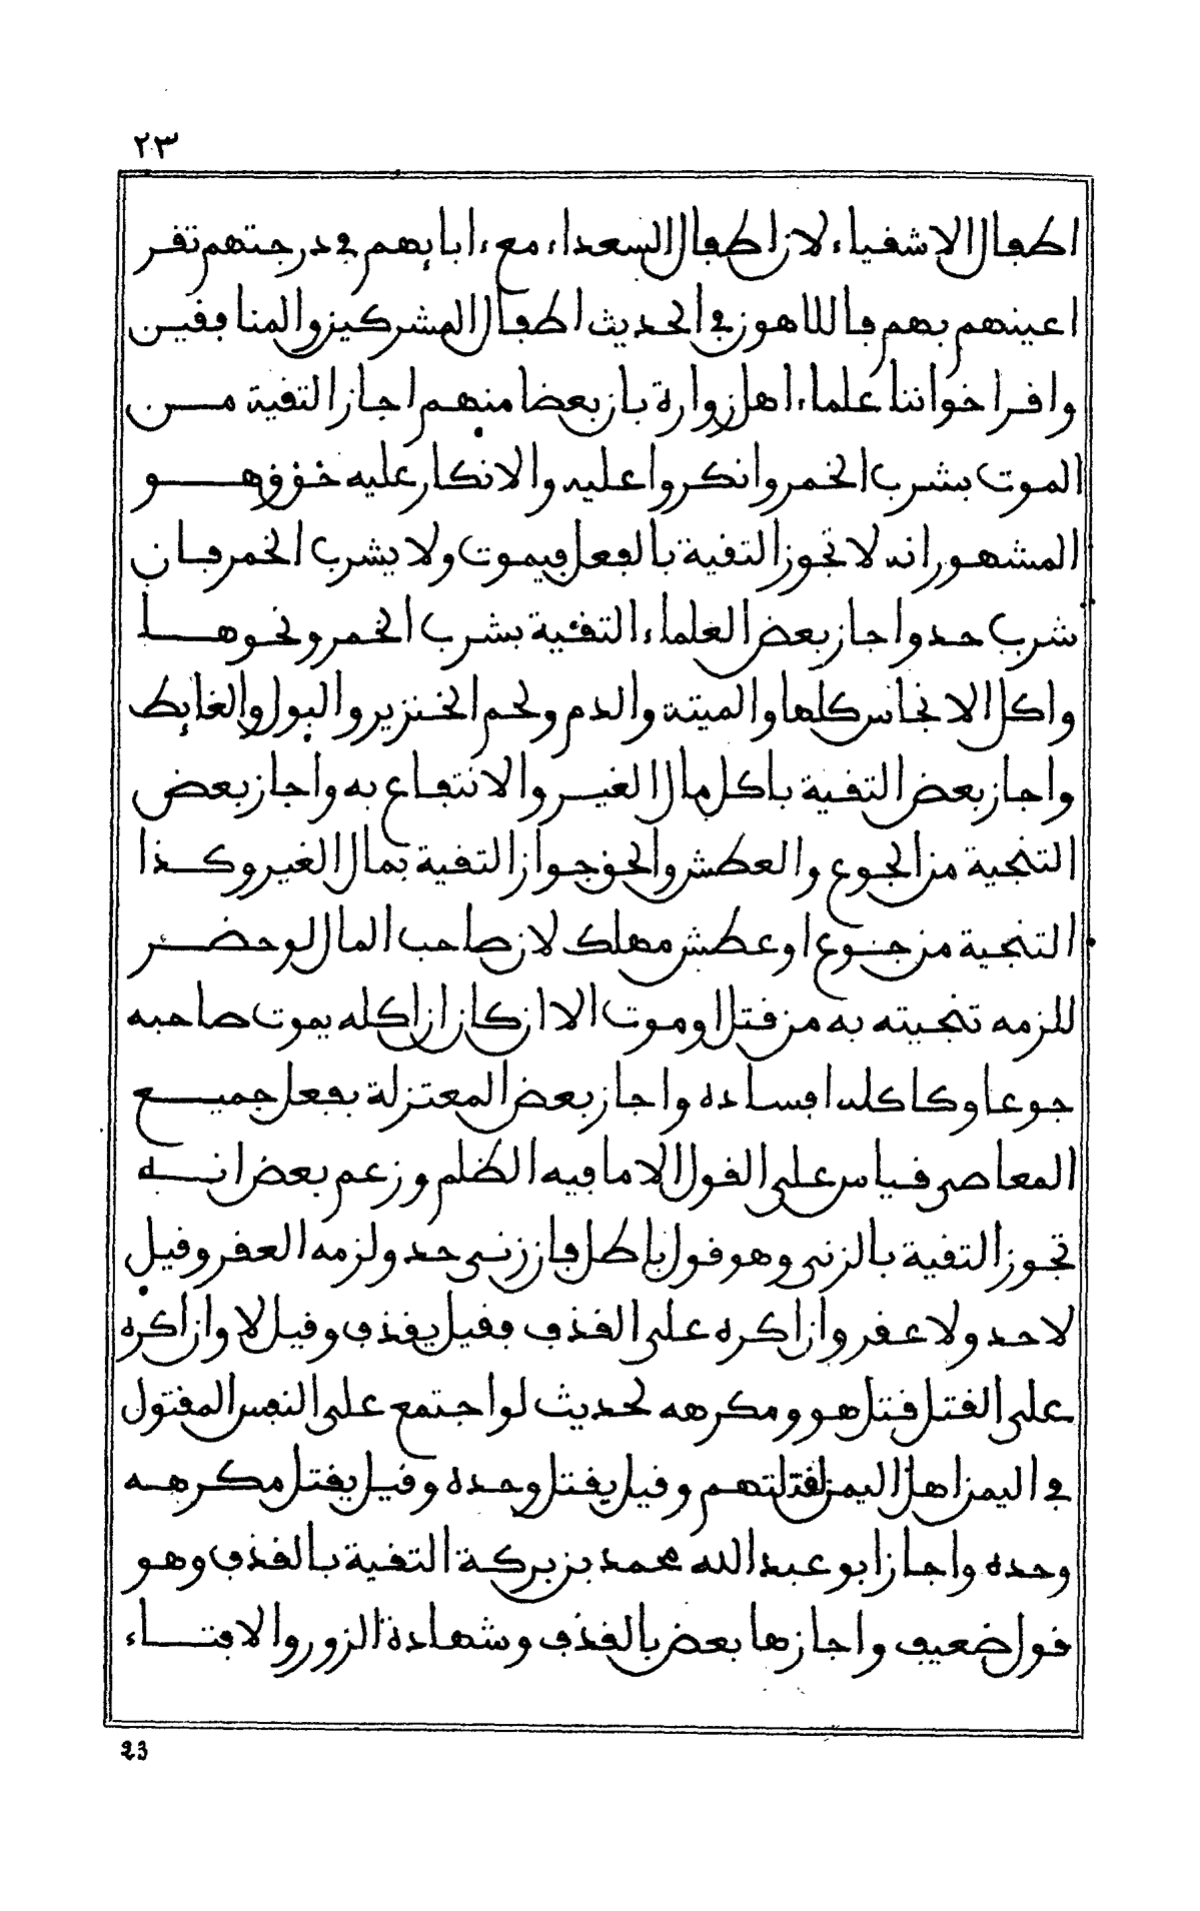 ٢٣
اطفال الاشقياء لان اطفال السعداء مع ءابايهم في درجتهم تقر
اعينهم بهم فاللاهون في الحديث اطفال المشركين والمنافقين
واقر اخواننا علماء اهل زوارة بان بعضا منهم اجاز التقية مــن
الموت بشرب الخمر وانكروا عليه والانكار عليه حق وهــو
المشهور انه لا تجوز التقية بالفعل فيموت ولا يشرب الخمر فان
شرب حد واجاز بعض العلماء التقية بشرب الخمر ونحوهــا
واكل الانجاس كلها والميتة والدم ولحم الخنزير والبول والغايط
واجاز بعض التقية باكل مال الغيــر والانتفاع به واجاز بعض
التنجية من الجوع والعطش والحق جواز التقية بمال الغير وكــذا
التنجية من جــوع او عطش مهلك لان صاحب المال لو حضــر
للزمه تنجيته به من قتل او موت الا ان كان ان اكله يموت صاحبه
جوعا وكاكله افساده واجاز بعض المعتزلة بفعل جميــع
المعاصي قياس على القول الا ما فيه الظلم وزعم بعض انــه
تجوز التقية بالزنى وهو قول باطل فان زنى حد ولزمه العقر وقيل
لا حد ولا عقر وان اكره على القذف فقيل يقذف وقيل لا وان اكره
على القتل قتل هو ومكرهه لحديث لو اجتمع على النفس المقتول
في اليمن اهل اليمن لقتلتهم وقيل يقتل وحده وقيل يقتل مكرهــه
وحده واجاز ابو عبد الله محمد بن بركة التقية بالقذف وهو
قول ضعيف واجازها بعض بالقذف وشهادة الزور والافتــاء
23